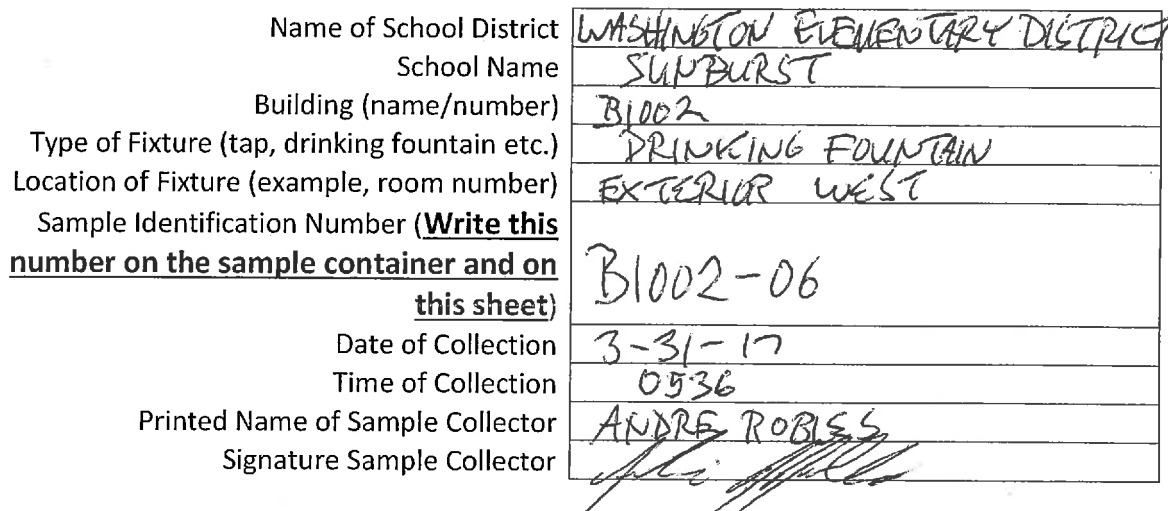 Name of School District WASHINGTON ELEMENTARY DISTRICT
School Name SUNBURST
Building (name/number) B1002
Type of Fixture (tap, drinking fountain etc.) DRINKING FOUNTAIN
Location of Fixture (example, room number) EXTERIOR WEST
Sample Identification Number (Write this
number on the sample container and on B1002-06
this sheet)
Date of Collection 3-31-17
Time of Collection 0536
Printed Name of Sample Collector ANDRE ROBLES
Signature Sample Collector